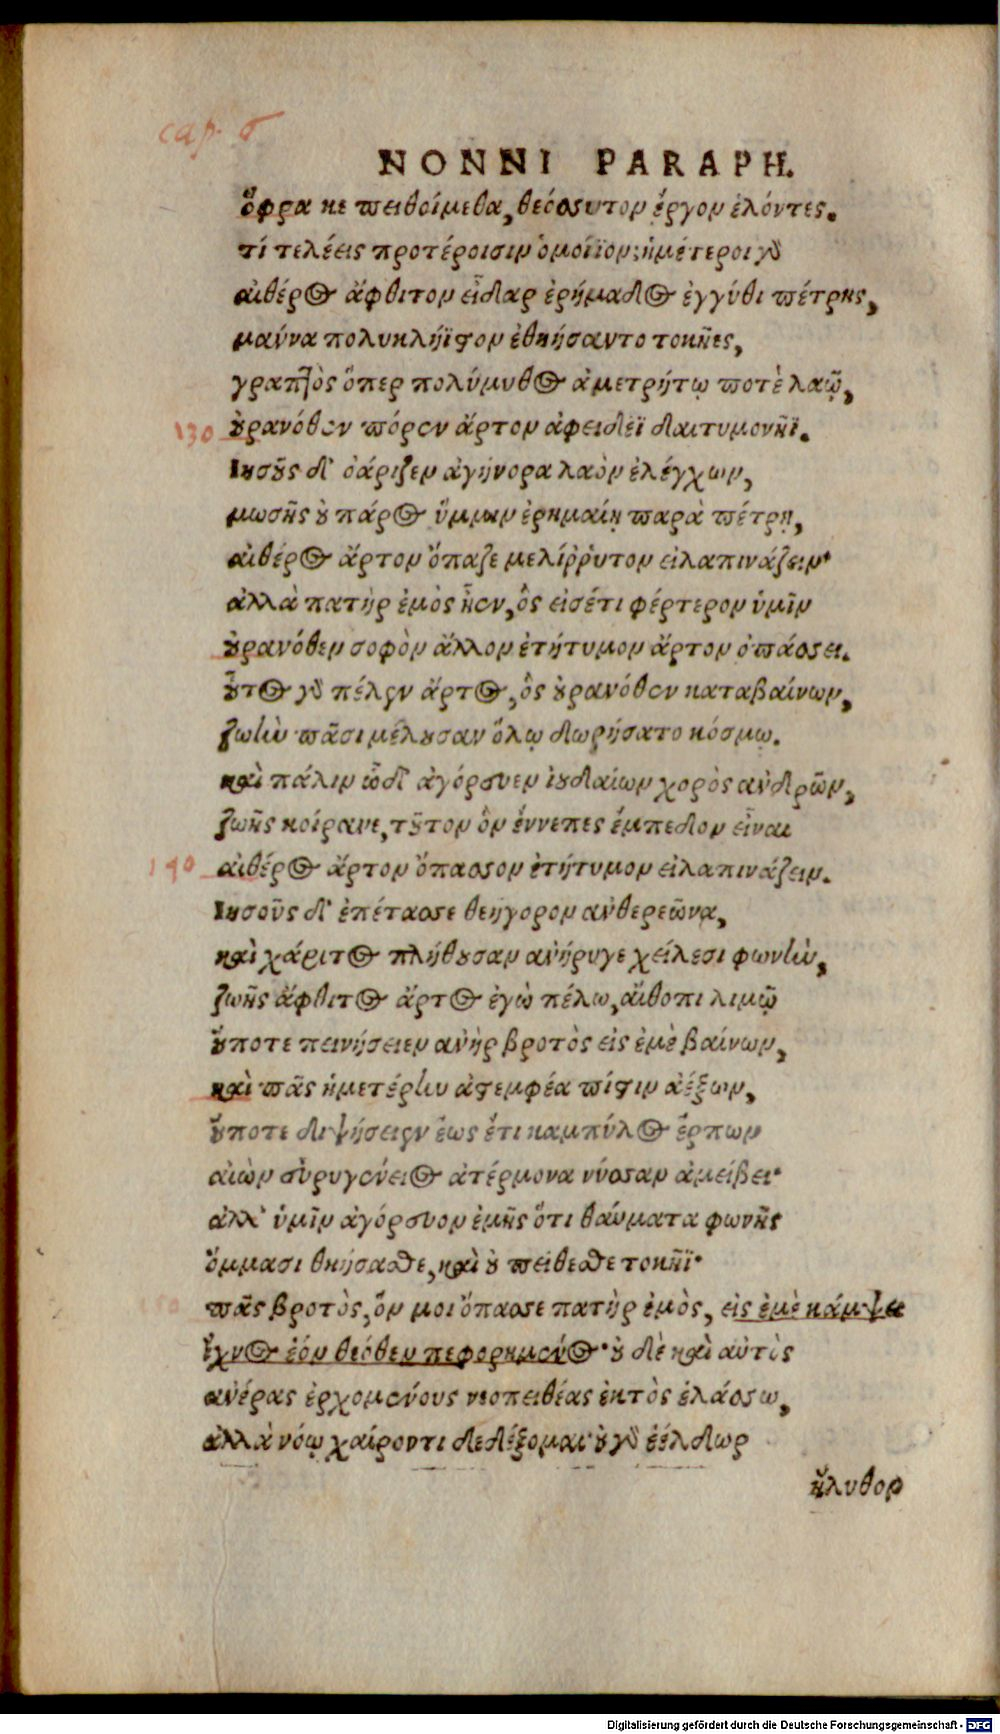 cap. 6
NONNI PARAPH.
ὄφρα κε πειθοίμεθα, θεόσσυτον ἔργον ἑλόντες.
τί τελέεις προτέροισιν ὁμοίϊον; ἡμέτεροι γὸ
αἰθέρος ἄφθιτον εἶδαρ ἐρήμαδος ἐγγύθι πέτρης,
μαύνα πολυκλήϊστον ἐθηήσαντο τοκῆες,
γραπτὸς ὅπερ πολύμυθος ἀμετρήτῳ ποτὲ λαῷ,
130 οὐρανόθεν πόρεν ἄρτον ἀφειδέϊ δαιτυμονῆϊ.
Ιησοῦς δ' ὀάριζεν ἀγήνορα λαὸν ἐλέγχων,
μωσῆς οὐ πάρος ὔμμιν ἐρημαίῃ παρὰ πέτρῃ,
αἰθέρος ἄρτον ὄπαζε μελίῤῥυτον εἰλαπινάζειν·
ἀλλὰ πατὴρ ἐμὸς ἦεν, ὃς εἰσέτι φέρτερον ὑμῖν
οὐρανόθεν σοφὸν ἄλλον ἐτήτυμον ἄρτον ὀπάσσει.
οὗτος γὸ πέλεν ἄρτος, ὃς οὐρανόθεν καταβαίνων,
ζωὴν πᾶσι μέλουσαν ὅλῳ δωρήσατο κόσμῳ.
καὶ πάλιν ὧδ' ἀγόρευεν ἰουδαίων χορὸς ἀνδρῶν,
ζωῆς κοίρανε, τοῦτον ὃν ἔννεπες ἔμπεδον εἶναι
140 αἰθέρος ἄρτον ὄπασσον ἐτήτυμον εἰλαπινάζειν.
Ιησοῦς δ' ἐπέτασσε θεηγορον ἀνθερεῶνα,
καὶ χάριτος πλήθουσαν ἀνήρυγε χείλεσι φωνὴν,
ζωῆς ἄφθιτος ἄρτος ἐγὼ πέλω, αἴθοπι λιμῷ
οὔποτε πεινήσειεν ἀνὴρ βροτὸς εἰς ἐμὲ βαίνων,
καὶ πᾶς ἡμετέρην ἀστεμφέα πίστιν ἀέξων,
οὔποτε διψήσειεν ἕως ἔτι καμπύλος ἕρπων
αἰὼν εὐρυγένειος ἀτέρμονα νύσσαν ἀμείβει·
ἀλλ' ὑμῖν ἀγόρευον ἐμῆς ὅτι θαύματα φωνῆς
ὄμμασι θηήσασθε, καὶ οὐ πείθεσθε τοκῆϊ·
150 πᾶς βροτὸς, ὅν μοι ὄπασσε πατὴρ ἐμὸς, εἰς ἐμὲ κάμψει
ἴχνος ἑὸν θεόθεν πεφορημένος· οὐ δὲ καὶ αὐτὸς
ἀνέρας ἐρχομένους νεοπειθέας ἐκτὸς ἐλάσσω,
ἀλλὰ νόῳ χαίροντι δεδέξομαι· οὐ γὸ ἐέλδωρ
ἤλυθον
Digitalisierung gefördert durch die Deutsche Forschungsgemeinschaft - DFG